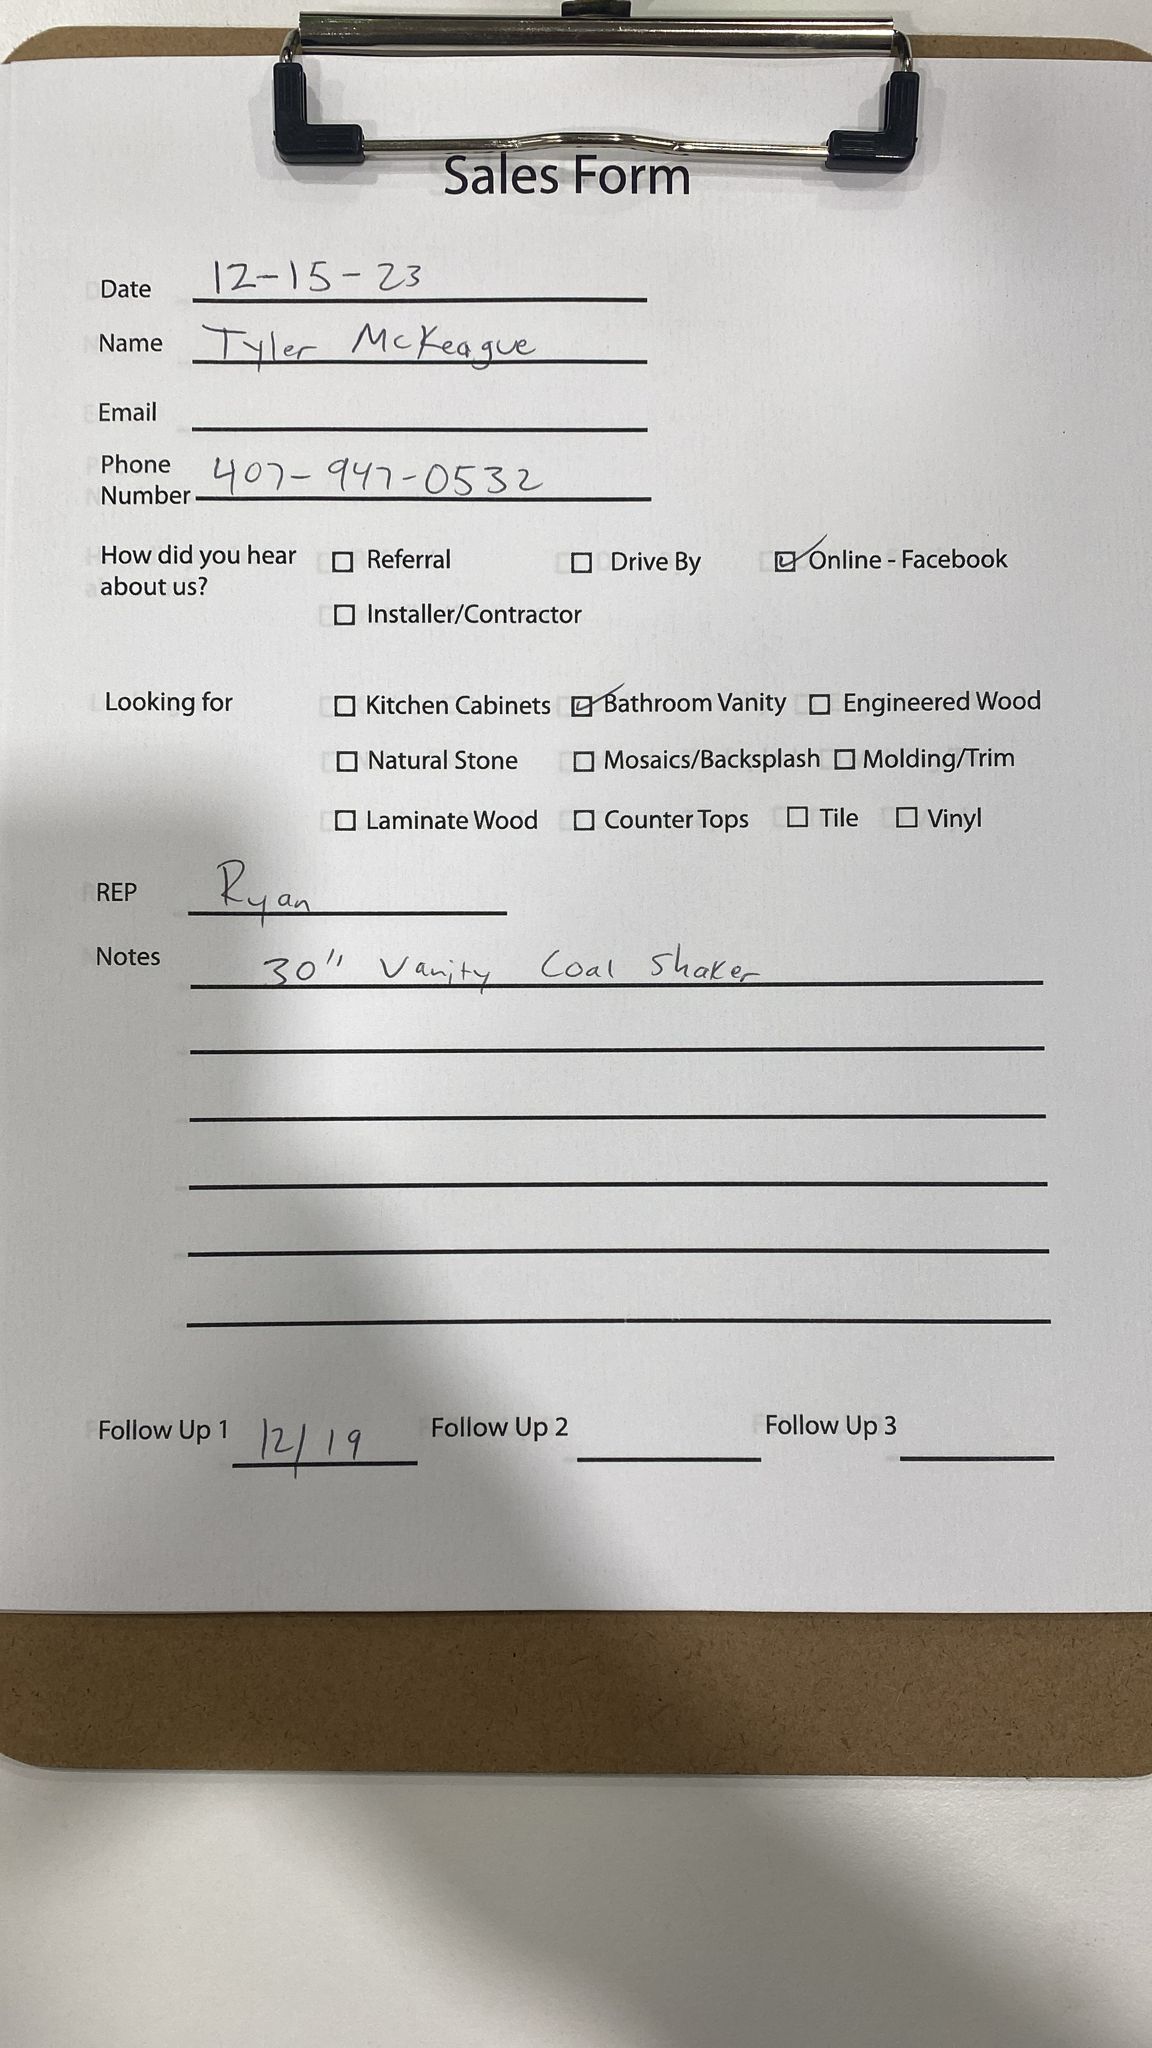 Sales Form
Date 12-15-23
Name Tyler McKeague
Email
Phone
Number 407-947-0532
How did you hear about us? Referral Drive By Online - Facebook
Installer/Contractor
Looking for Kitchen Cabinets Bathroom Vanity Engineered Wood
Natural Stone Mosaics/Backsplash Molding/Trim
Laminate Wood Counter Tops Tile Vinyl
REP Ryan
Notes 30" Vanity Coal Shaker
Follow Up 1 12/19 Follow Up 2 Follow Up 3